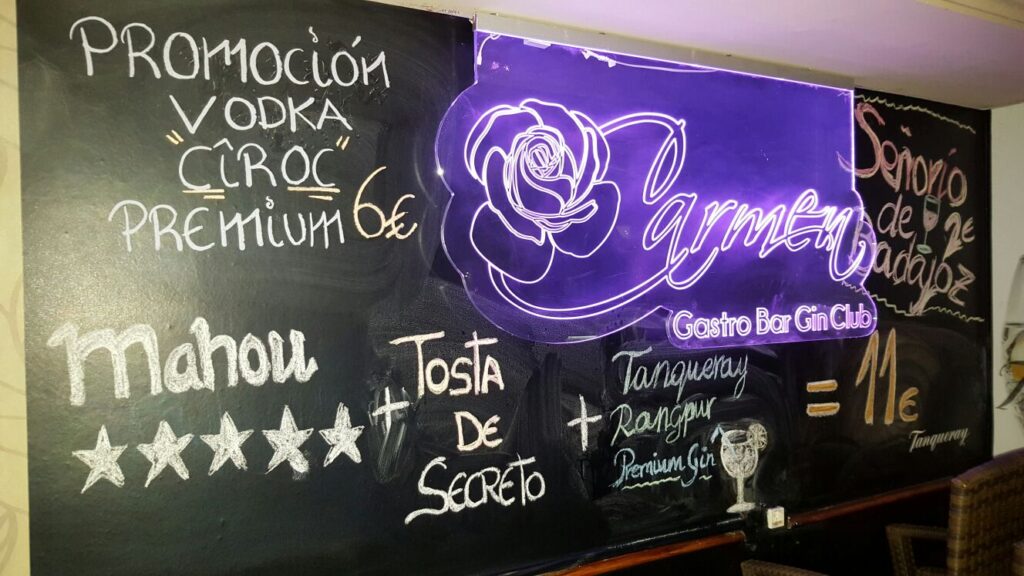 PROMOCIÓN
VODKA
"CÎROC"
PREMIUM 6€
Carmen
Gastro Bar Gin Club
Señorío
de
Badajoz
2€
Mahou
+
TOSTA
DE
SECRETO
+
Tanqueray
Rangpur
Premium Gin
= 11€
Tanqueray